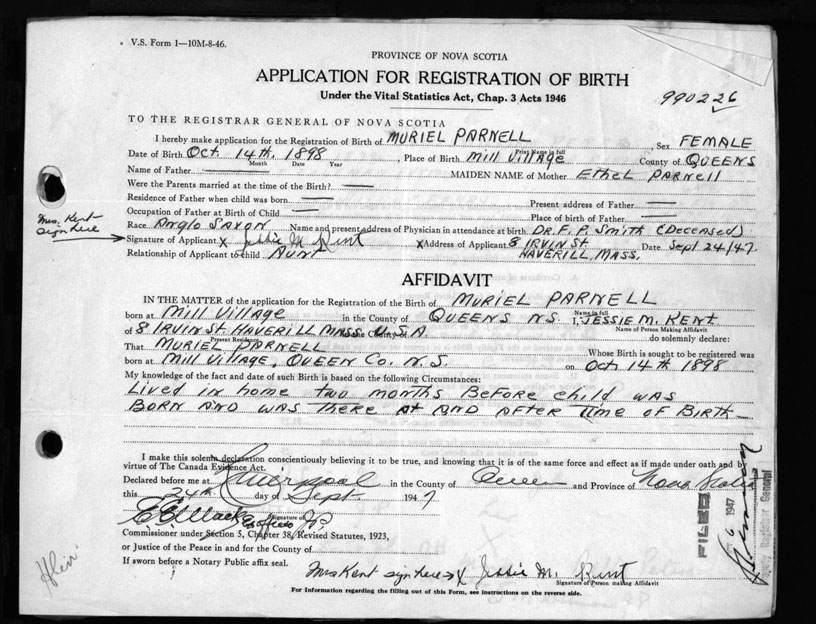 V.S. Form 1—10M-8-46.
PROVINCE OF NOVA SCOTIA
APPLICATION FOR REGISTRATION OF BIRTH
Under the Vital Statistics Act, Chap. 3 Acts 1946
990226
TO THE REGISTRAR GENERAL OF NOVA SCOTIA
I hereby make application for the Registration of Birth of MURIEL PARNELL, Sex FEMALE
Print Name in full
Date of Birth Oct. 14th. 1898, Place of Birth Mill Village County of QUEENS
Month Date Year
Name of Father — MAIDEN NAME of Mother Ethel PARNEll
Were the Parents married at the time of the Birth? —
Residence of Father when child was born — Present address of Father —
Occupation of Father at Birth of Child — Place of birth of Father —
Race Anglo SAXON Name and present address of Physician in attendance at birth DR. F. P. Smith (Deceased)
Mrs. Kent sign here
Signature of Applicant X Jessie M. Kent X Address of Applicant 8 IRVIN St HAVERILL, MASS. Date Sept 24/47.
Relationship of Applicant to child AUNT
AFFIDAVIT
IN THE MATTER of the application for the Registration of the Birth of MURIEL PARNELL
Name in full
born at Mill Village in the County of QUEENS N.S. I, JESSIE M. KENT.
Name of Person Making Affidavit
of 8 IRVIN St HAVERILL MASS. U.S.A. do solemnly declare:
Present Residence
That MURIEL PARNELL Whose Birth is sought to be registered was
born at Mill Village, QUEEN Co. N.S. on Oct 14th 1898
My knowledge of the fact and date of such Birth is based on the following Circumstances:
Lived in home two months Before child WAS
BORN AND WAS there At AND AFter time OF BIRTH
I make this solemn declaration conscientiously believing it to be true, and knowing that it is of the same force and effect as if made under oath and by
virtue of The Canada Evidence Act.
Declared before me at Liverpool in the County of Queen and Province of Nova Scotia
this 24th day of Sept 1947
Signature of
Commissioner under Section 5, Chapter 38, Revised Statutes, 1923,
or Justice of the Peace in and for the County of
If sworn before a Notary Public affix seal.
Mrs Kent sign here X Jessie M. Kent
Signature of Person making Affidavit
For Information regarding the filling out of this Form, see instructions on the reverse side.
FILED
1947
Registrar General